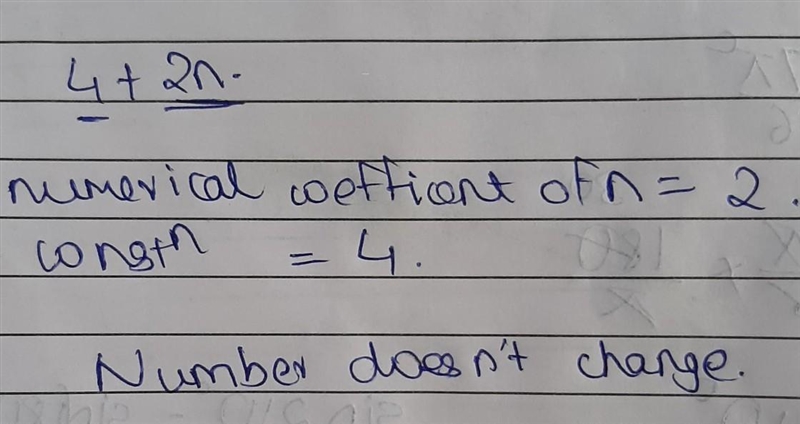 4 + 2n.
numerical coefficent of n = 2.
constn = 4.
Number doesn't change.